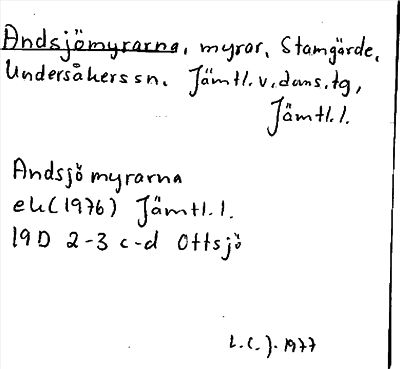 Andsjömyrarna, myrar, Stamgärde,
Undersåkers sn. Jämtl. v. doms. tg,
Jämtl. l.
Andsjömyrarna
ek (1976) Jämtl. l.
19D 2-3 c-d Ottsjö
L.C.J. 1977